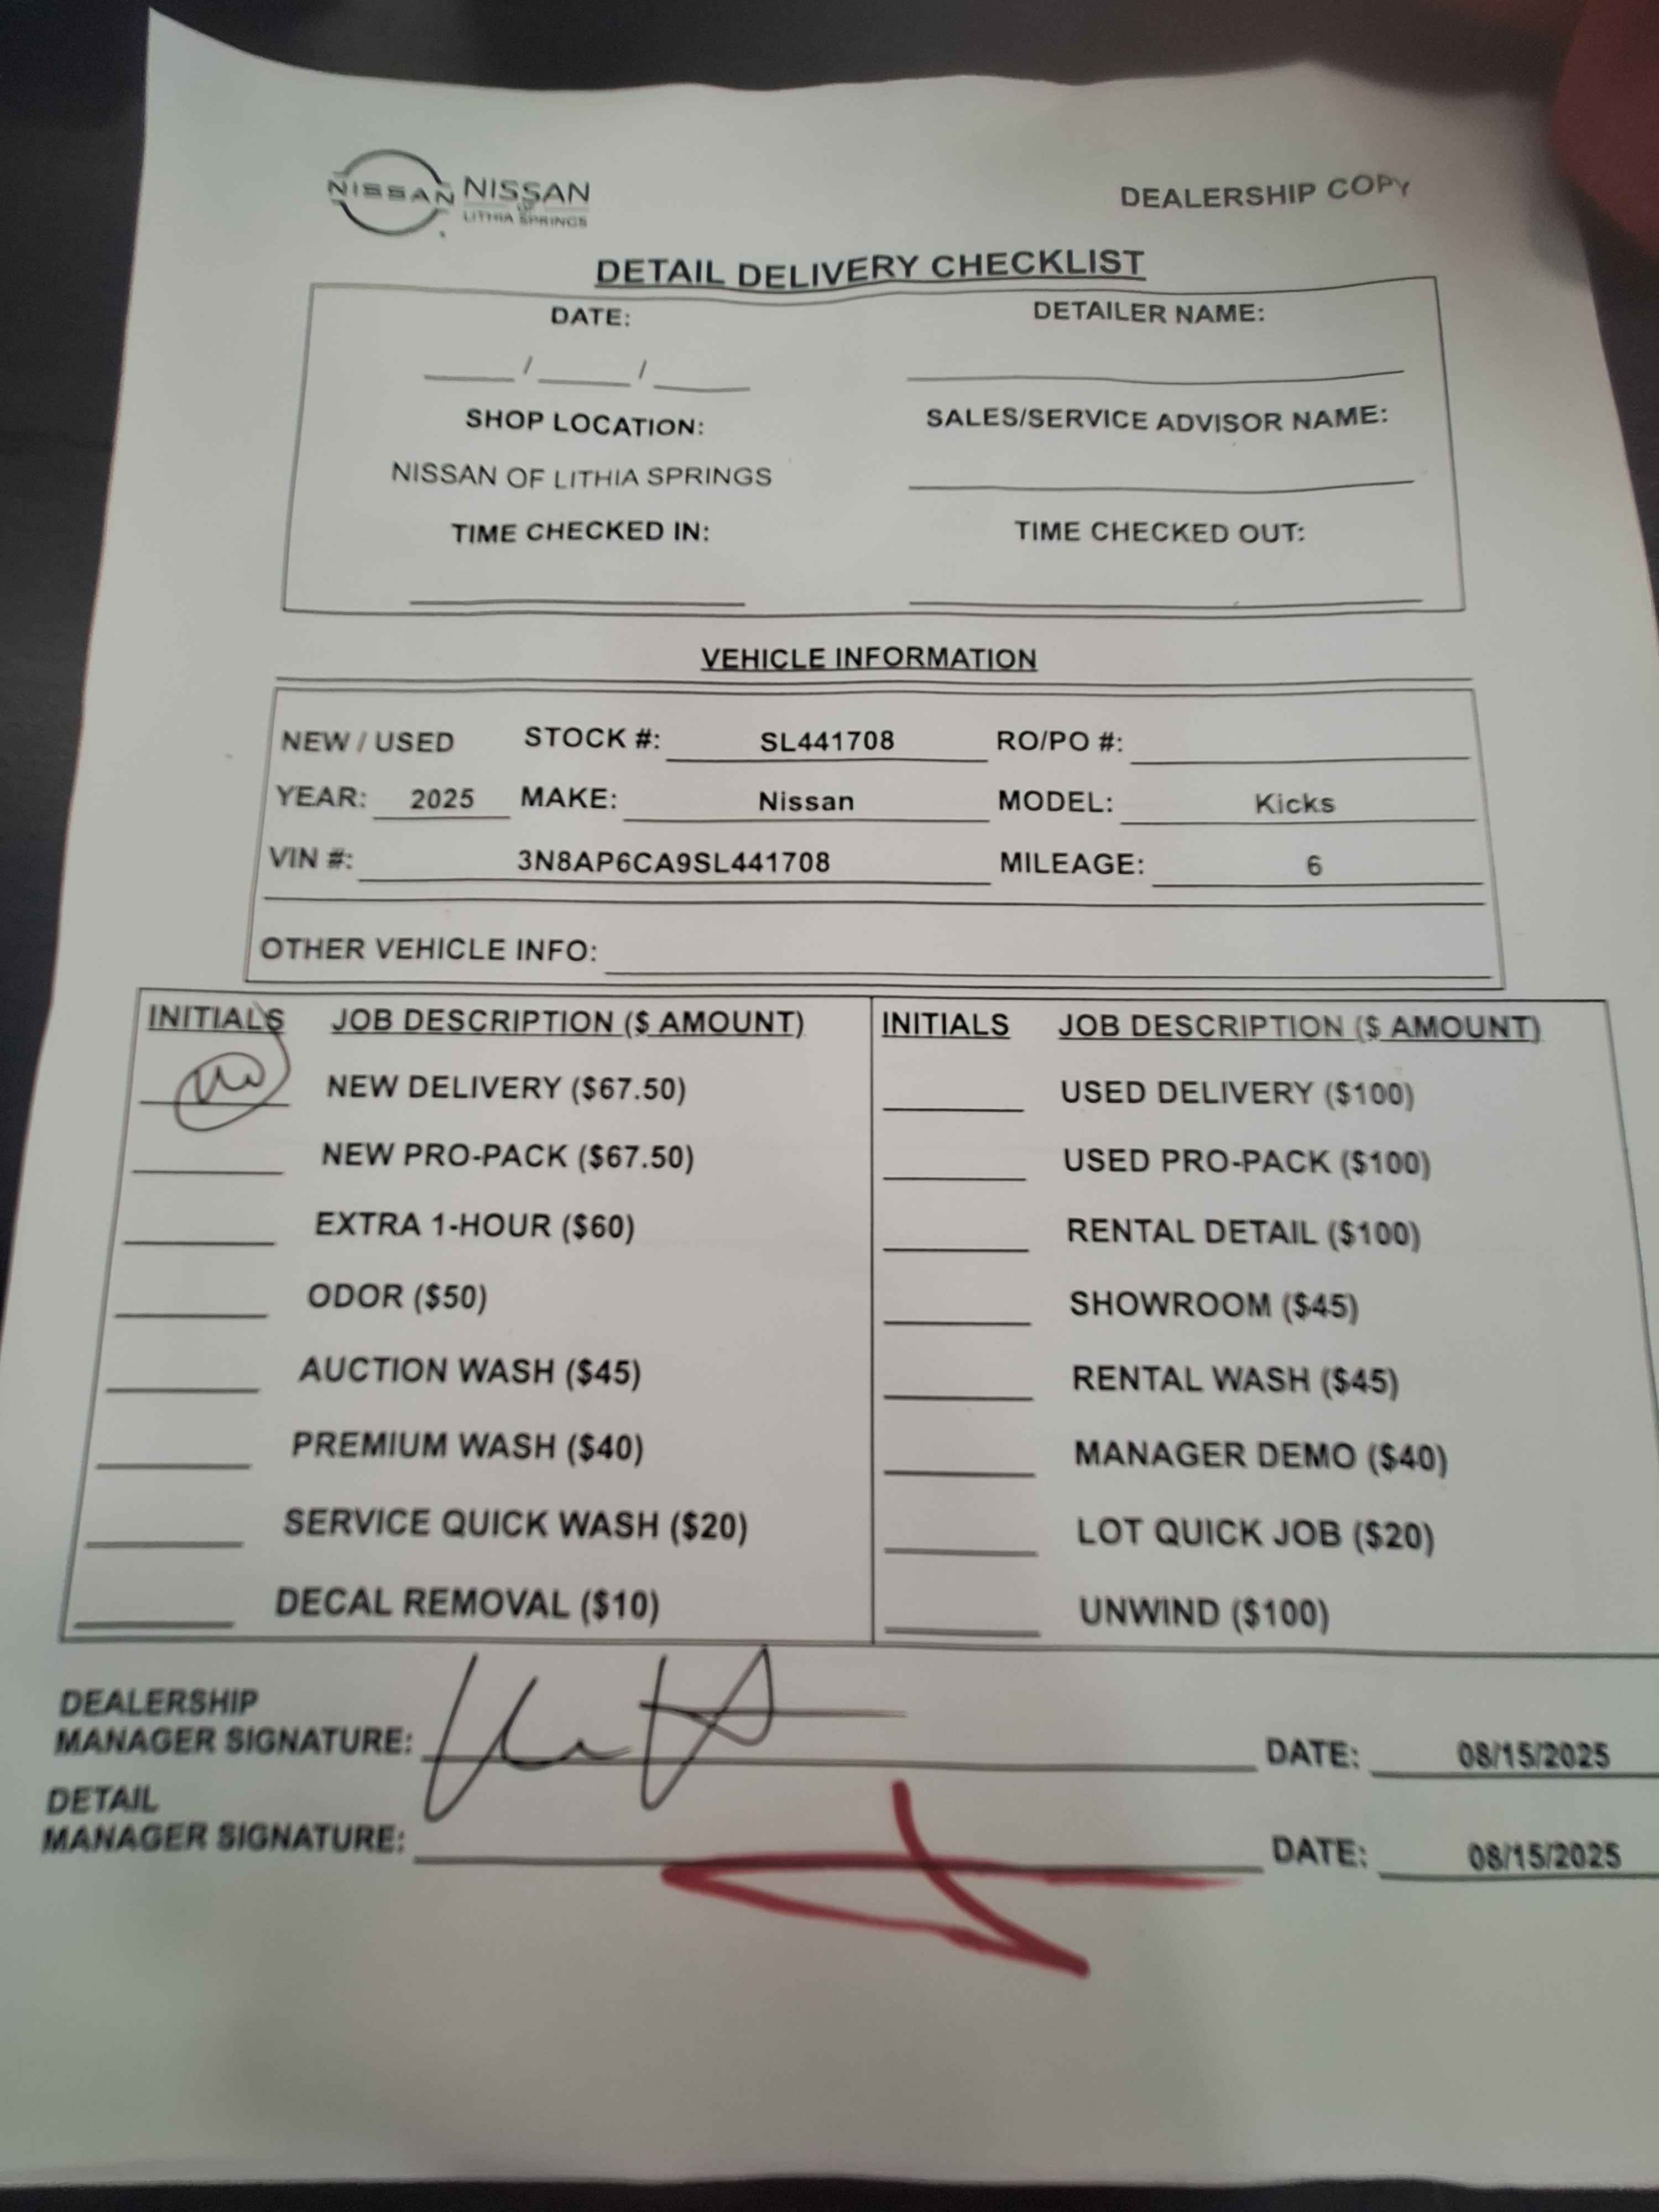 NISSAN NISSAN
OF
LITHIA SPRINGS
DEALERSHIP COPY
DETAIL DELIVERY CHECKLIST
DATE: DETAILER NAME:
____ / ____ / ____
SHOP LOCATION: SALES/SERVICE ADVISOR NAME:
NISSAN OF LITHIA SPRINGS
TIME CHECKED IN: TIME CHECKED OUT:
VEHICLE INFORMATION
NEW / USED STOCK #: SL441708 RO/PO #:
YEAR: 2025 MAKE: Nissan MODEL: Kicks
VIN #: 3N8AP6CA9SL441708 MILEAGE: 6
OTHER VEHICLE INFO:
INITIALS JOB DESCRIPTION ($ AMOUNT) INITIALS JOB DESCRIPTION ($ AMOUNT)
NEW DELIVERY ($67.50) USED DELIVERY ($100)
NEW PRO-PACK ($67.50) USED PRO-PACK ($100)
EXTRA 1-HOUR ($60) RENTAL DETAIL ($100)
ODOR ($50) SHOWROOM ($45)
AUCTION WASH ($45) RENTAL WASH ($45)
PREMIUM WASH ($40) MANAGER DEMO ($40)
SERVICE QUICK WASH ($20) LOT QUICK JOB ($20)
DECAL REMOVAL ($10) UNWIND ($100)
DEALERSHIP
MANAGER SIGNATURE: DATE: 08/15/2025
DETAIL
MANAGER SIGNATURE: DATE: 08/15/2025